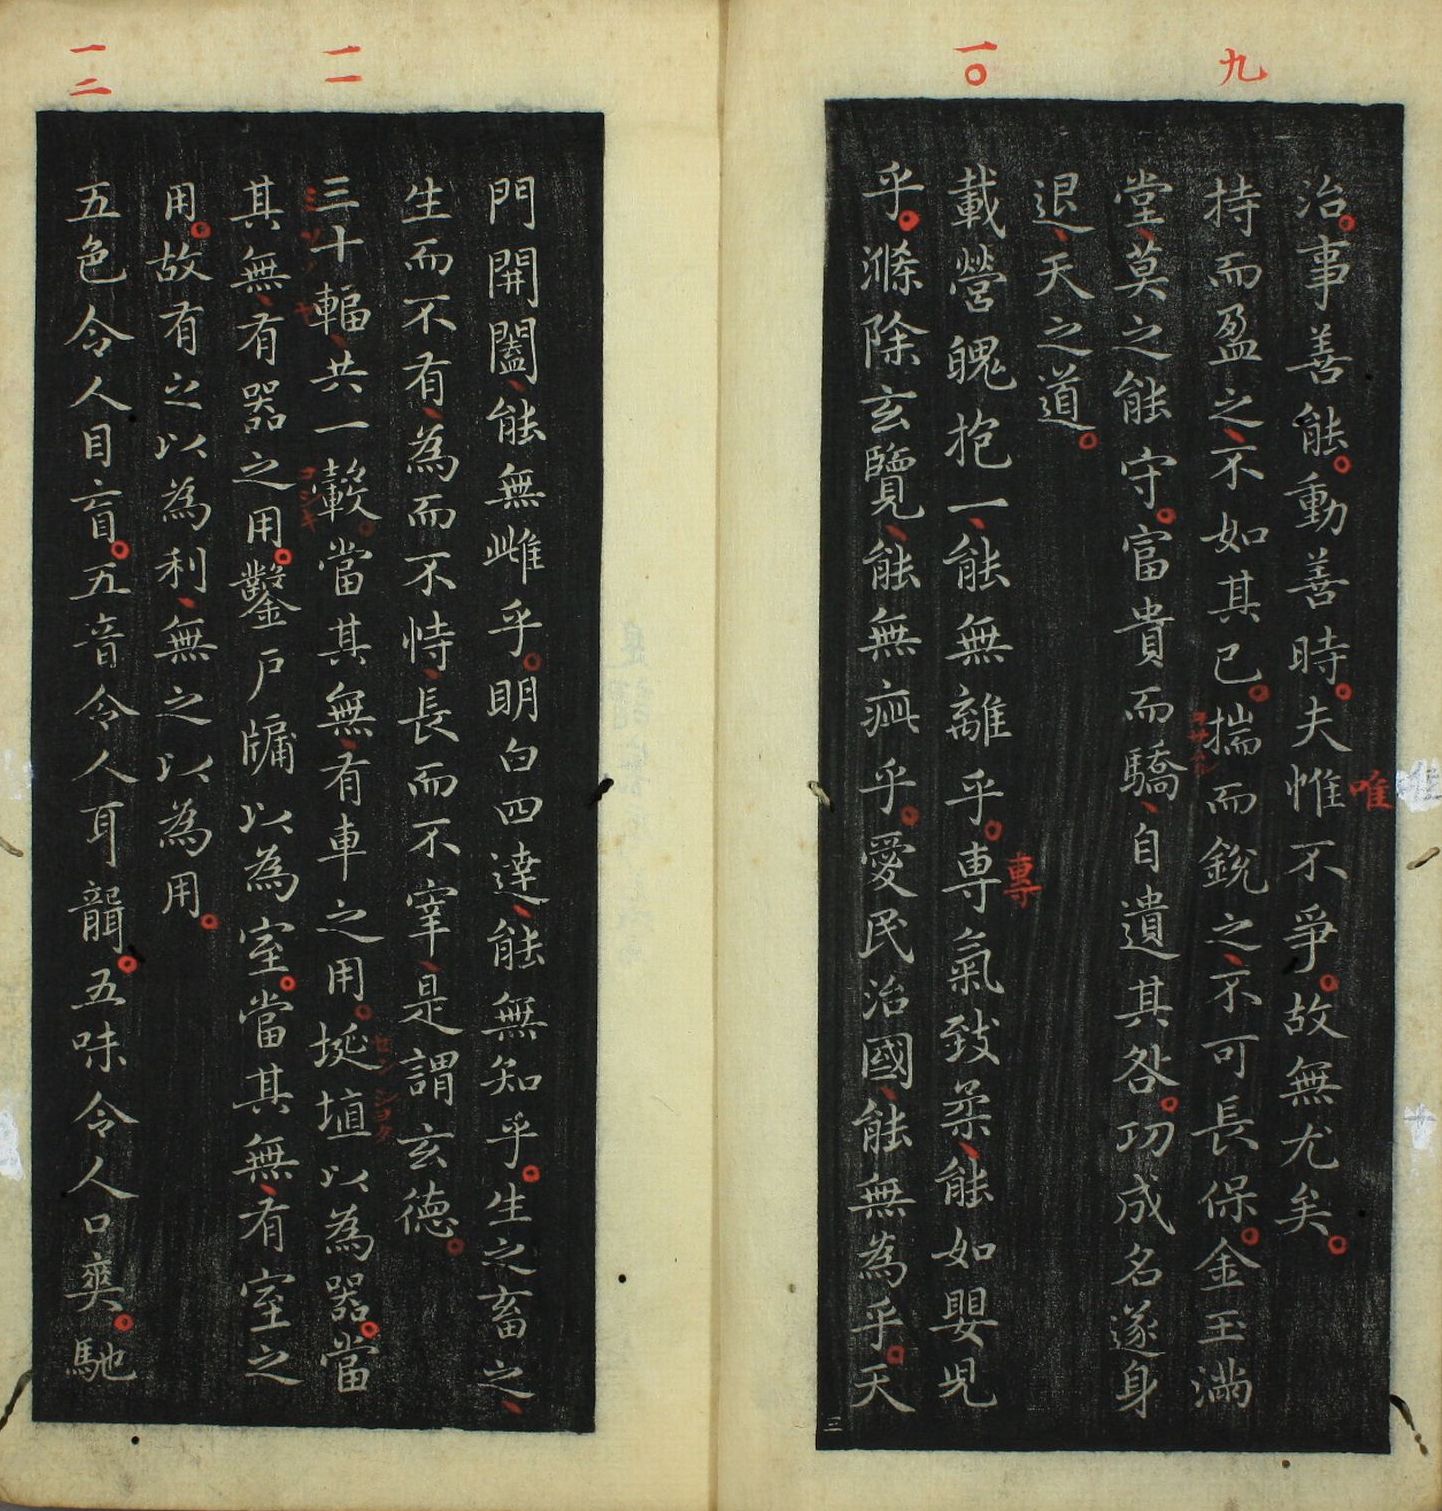 九
治。事善能。動善時。夫惟不爭。故無尤矣。
唯
持而盈之、不如其已。揣而銳之、不可長保。金玉滿
堂、莫之能守。富貴而驕、自遺其咎。功成名遂身
退、天之道。
一〇
載營魄抱一、能無離乎。専氣致柔、能如嬰児
專
乎。滌除玄覽、能無疵乎。愛民治國、能無為乎。天
三
門開闔、能無雌乎。明白四達、能無知乎。生之畜之、
生而不有、為而不恃、長而不宰、是謂玄德。
一一
三十輻、共一轂。當其無、有車之用。埏埴以為器。當
ミソノヤ
コシキ
其無、有器之用。鑿戶牖以為室。當其無、有室之
用。故有之以為利、無之以為用。
一二
五色令人目盲。五音令人耳聾。五味令人口爽。馳